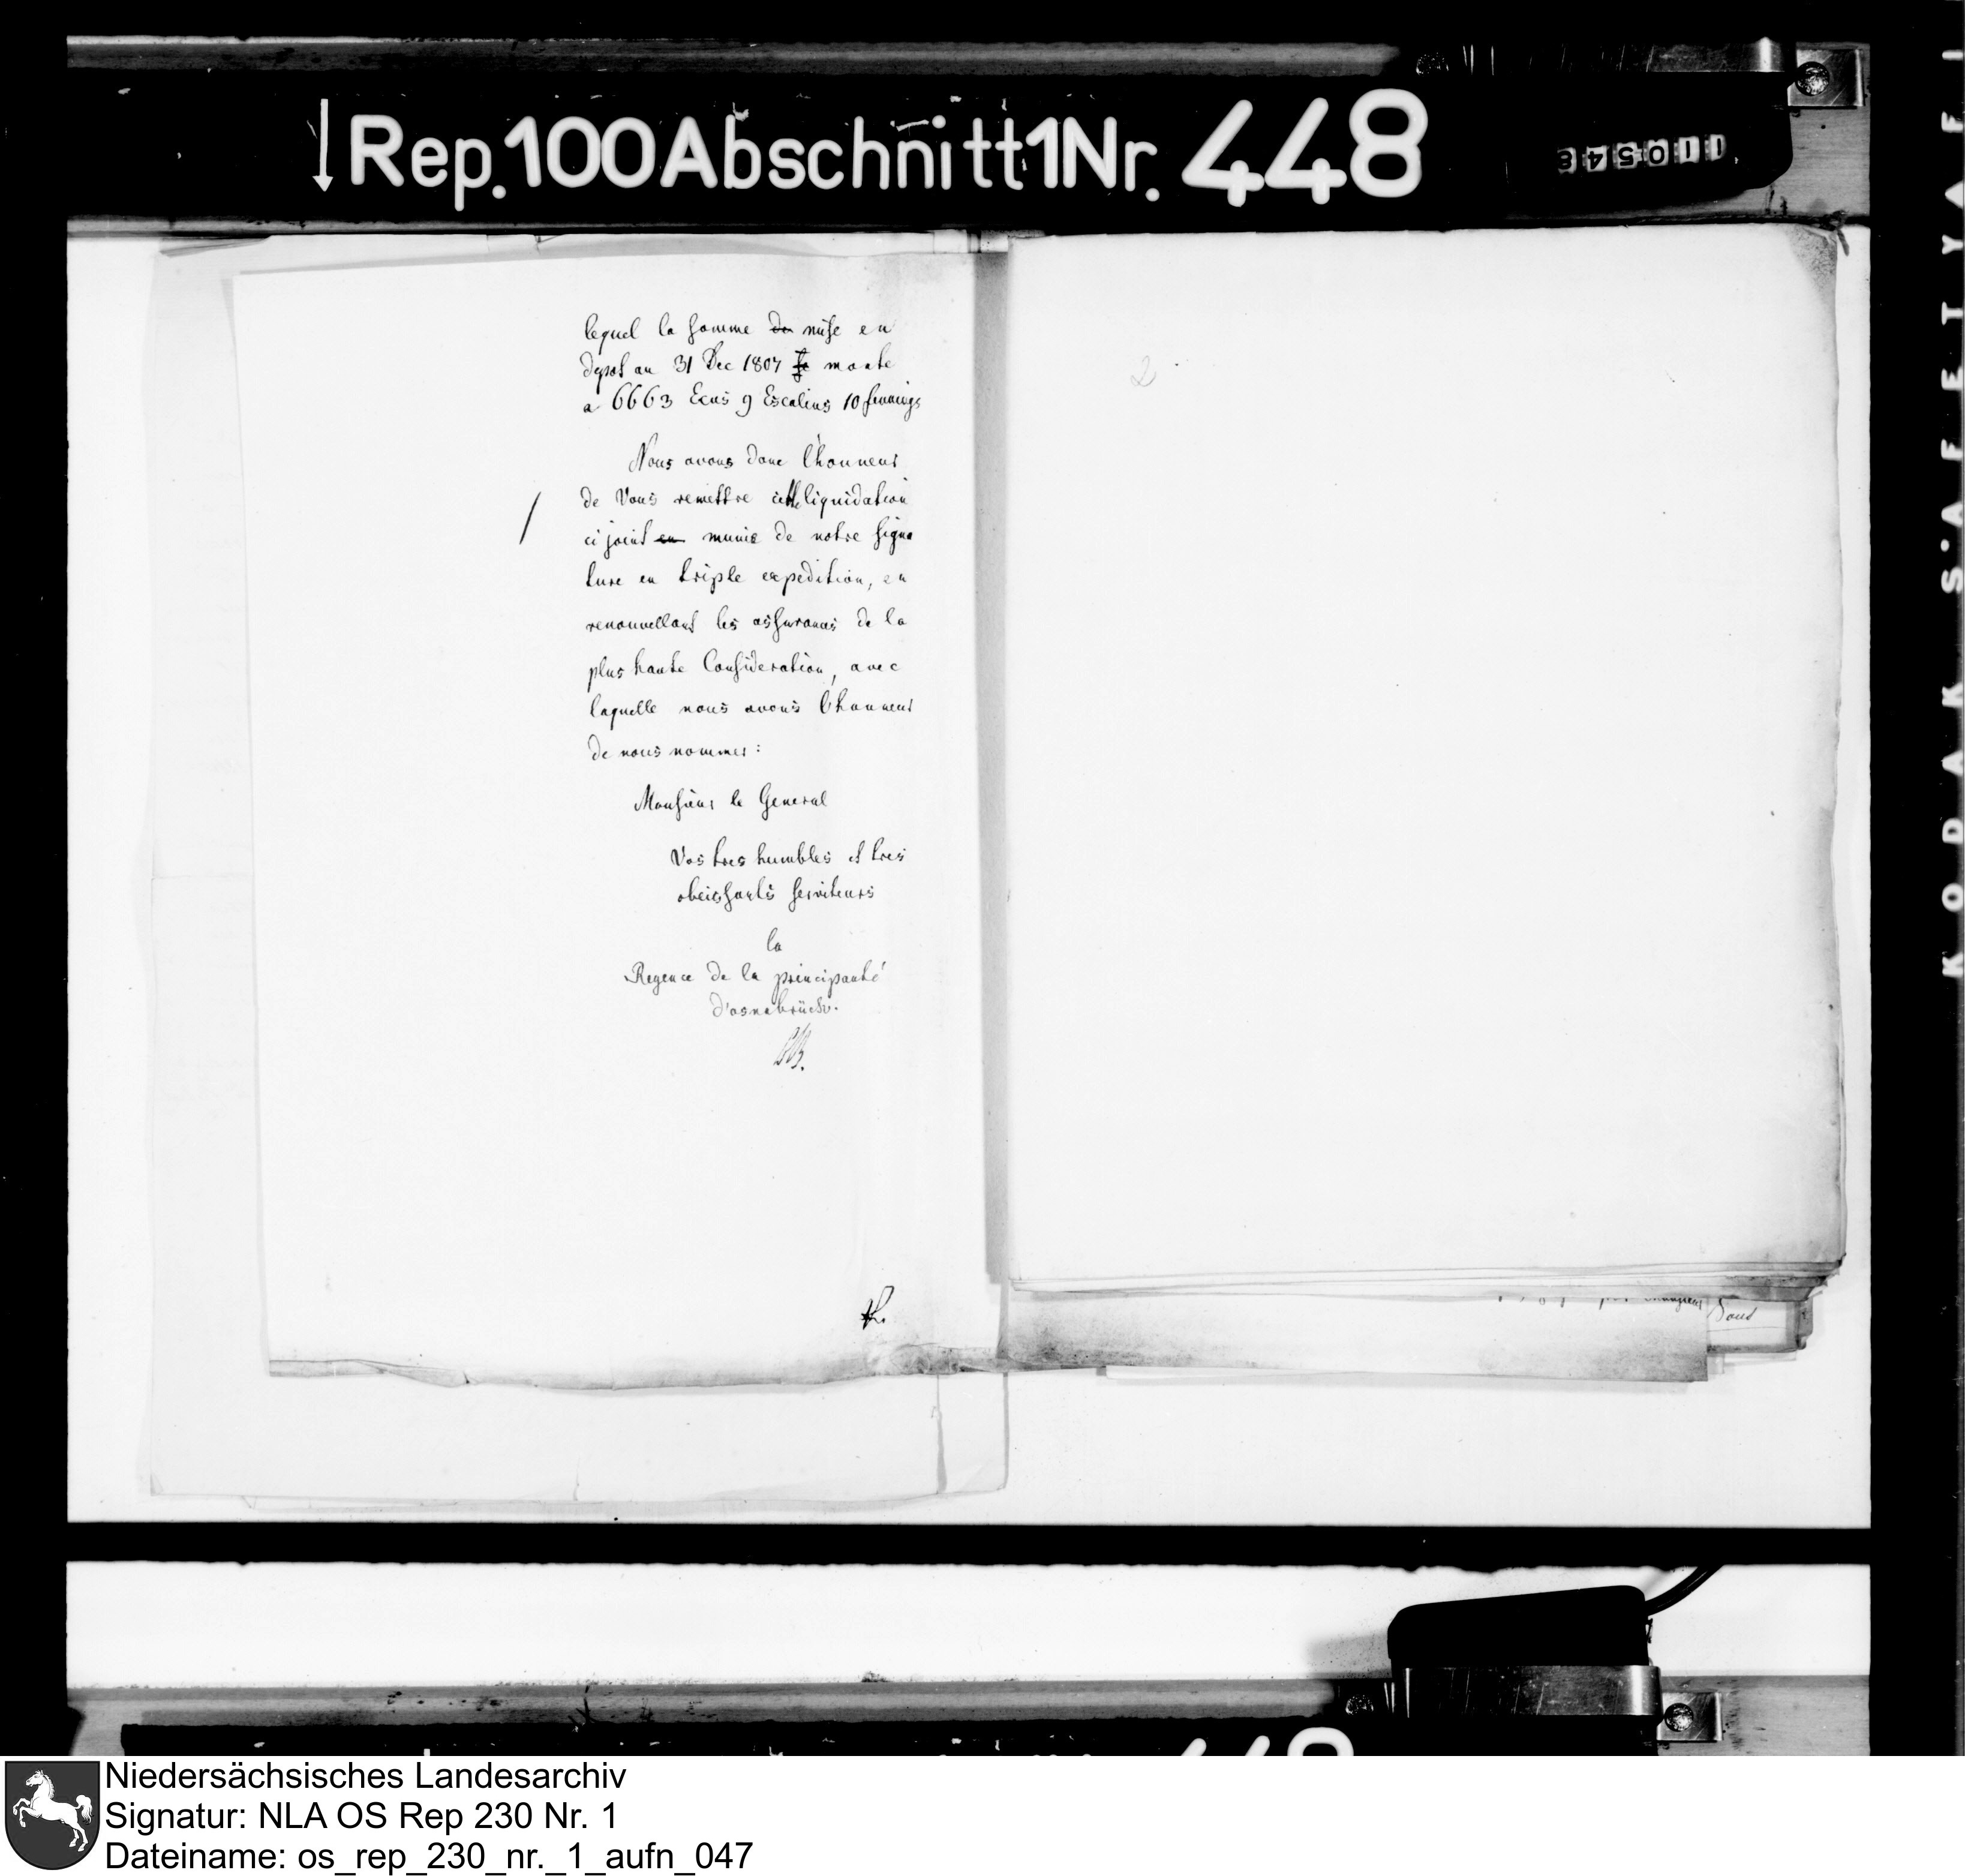 Rep.100Abschnitt1Nr. 448
110543
lequel la somme de mise en
depot au 31 Dec 1807 se monte
a 6663 Ecus 9 Escalins 10 fennings
Nous avons donc l'honneur
de Vous remettre cette liquidation
/
ci joint en munie de notre signa
ture en triple expedition, en
renouvellant les assurances de la
plus haute Consideration, avec
laquelle nous avons l'honneur
de nous nommer:
Monsieur le General
Vos tres humbles et tres
obeissants serviteurs
la
Regence de la principauté
d'osnabrück.
2
KODAK S·AFETY AF I
Niedersächsisches Landesarchiv
Signatur: NLA OS Rep 230 Nr. 1
Dateiname: os_rep_230_nr._1_aufn_047